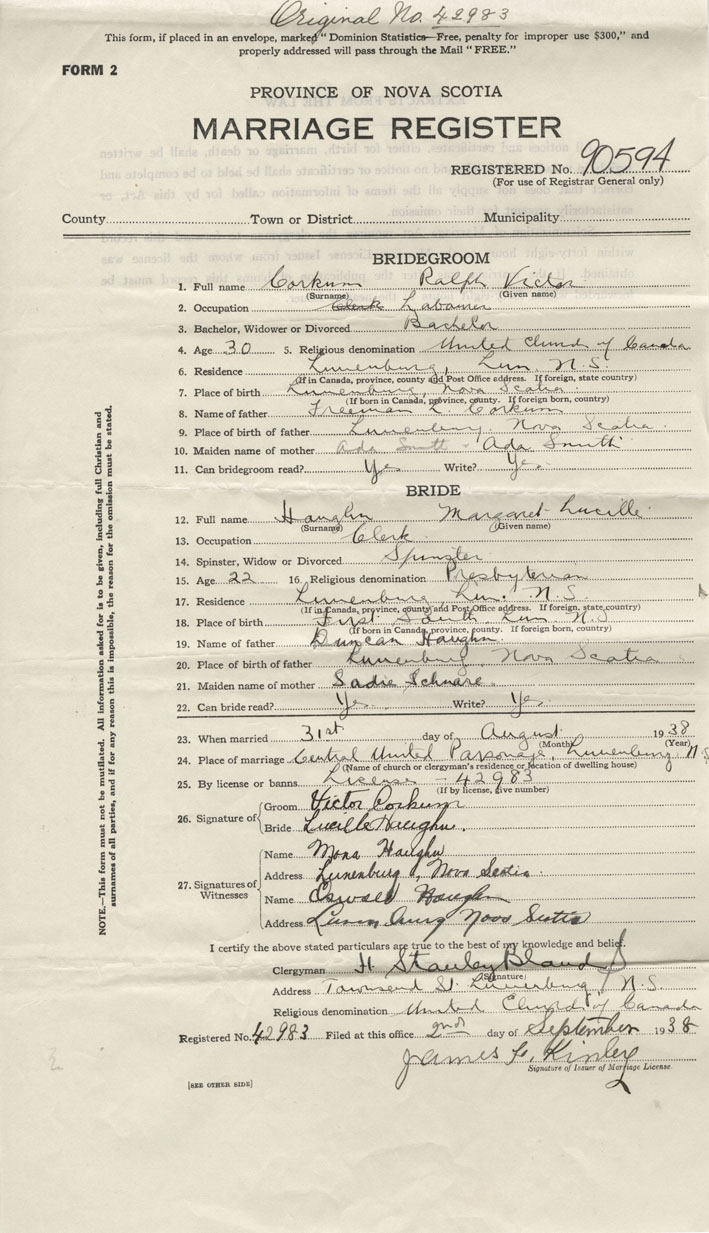 Original No. 42983
This form, if placed in an envelope, marked "Dominion Statistics—Free, penalty for improper use $300," and
properly addressed will pass through the Mail "FREE."
FORM 2
PROVINCE OF NOVA SCOTIA
MARRIAGE REGISTER
REGISTERED No. 90594
(For use of Registrar General only)
County Town or District Municipality
BRIDEGROOM
1. Full name Corkum Ralph Victor
(Surname) (Given name)
2. Occupation Clerk Labourer
3. Bachelor, Widower or Divorced Bachelor
4. Age 30 5. Religious denomination United Church of Canada
6. Residence Lunenburg, Lun. N.S.
(If in Canada, province, county and Post Office address. If foreign, state country)
7. Place of birth Lunenburg, Nova Scotia
(If born in Canada, province, county. If foreign born, country)
8. Name of father Freeman L. Corkum
9. Place of birth of father Lunenburg, Nova Scotia
10. Maiden name of mother Ada Smith - Ada Smith
11. Can bridegroom read? Yes Write? Yes
BRIDE
12. Full name Haughn Margaret Lucille
(Surname) (Given name)
13. Occupation Clerk
14. Spinster, Widow or Divorced Spinster
15. Age 22 16. Religious denomination Presbyterian
17. Residence Lunenburg, Lun. N.S.
(If in Canada, province, county and Post Office address. If foreign, state country)
18. Place of birth First South Lun N.S.
(If born in Canada, province, county. If foreign born, country)
19. Name of father Duncan Haughn
20. Place of birth of father Lunenburg, Nova Scotia
21. Maiden name of mother Sadie Schnare
22. Can bride read? Yes Write? Yes
23. When married 31st day of August 1938
(Month) (Year)
24. Place of marriage Central United Parsonage, Lunenburg, N.S
(Name of church or clergyman's residence or location of dwelling house)
25. By license or banns License - 42983
(If by license, give number)
26. Signature of Groom Victor Corkum
Bride Lucille Haughn.
27. Signatures of Witnesses
Name Mona Haughn
Address Lunenburg, Nova Scotia
Name Oswald Haughn
Address Lunenburg Nova Scotia
I certify the above stated particulars are true to the best of my knowledge and belief.
Clergyman H Stanley Bland
(Signature)
Address Townsend St. Lunenburg, N.S.
Religious denomination United Church of Canada
Registered No. 42983 Filed at this office 2nd day of September 1938
James L. Kinley
Signature of Issuer of Marriage License.
[SEE OTHER SIDE]
NOTE.—This form must not be mutilated. All information asked for is to be given, including full Christian and
surnames of all parties, and if for any reason this is impossible, the reason for the omission must be stated.